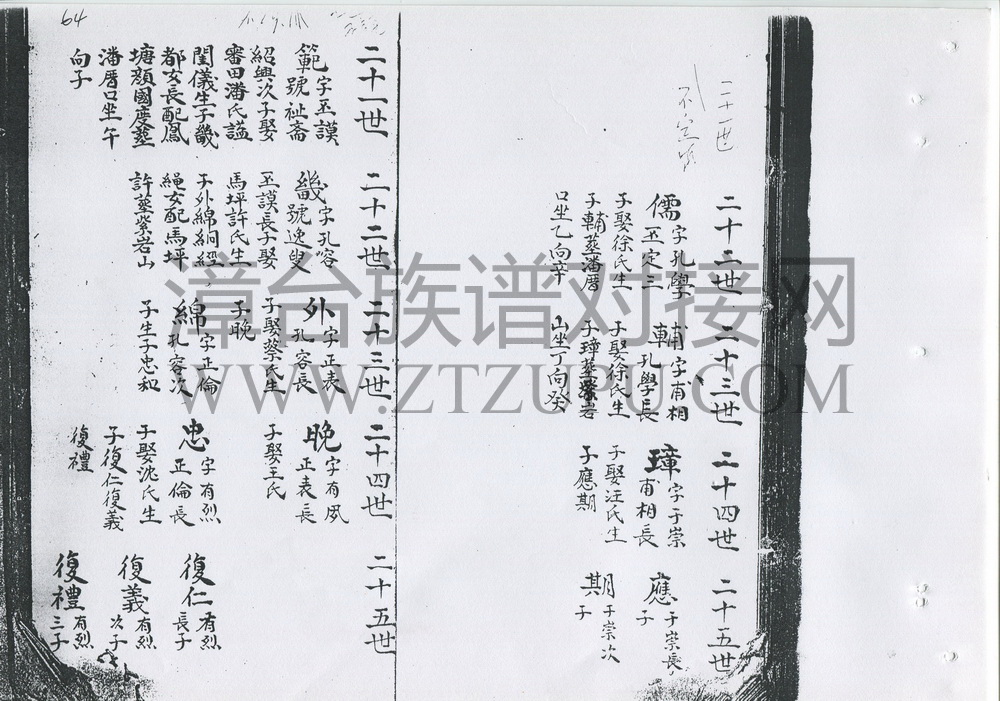 64
二十一世
不定
二十二世
儒 字孔學
丕定三
子娶徐氏生
子輔葬潘厝
口坐乙向辛
二十三世
輔 字甫相
孔學長
子娶徐氏生
子璋葬紫岩
山坐丁向癸
二十四世
璋 字于崇
甫相長
子娶汪氏生
子應期
二十五世
應 于崇長
子
期 于崇次
子
二十一世
範 字丕謨
號祉齋
紹興次子娶
審田潘氏謚
閨儀生子畿
都女長配鳳
塘顏國度葬
潘厝口坐午
向子
二十二世
畿 字孔容
號逸叟
丕謨長子娶
馬坪許氏生
子外綿絅經
繩女配馬坪
許葬紫岩山
二十三世
外 字正表
孔容長
子娶蔡氏生
子晚
綿 字正倫
孔容次
子生子忠和
二十四世
晚 字有夙
正表長
子娶王氏
忠 字有烈
正倫長
子娶沈氏生
子復仁復義
復禮
二十五世
復仁 有烈
長子
復義 有烈
次子
復禮 有烈
三子
漳台族谱对接网
WWW.ZTZUPU.COM